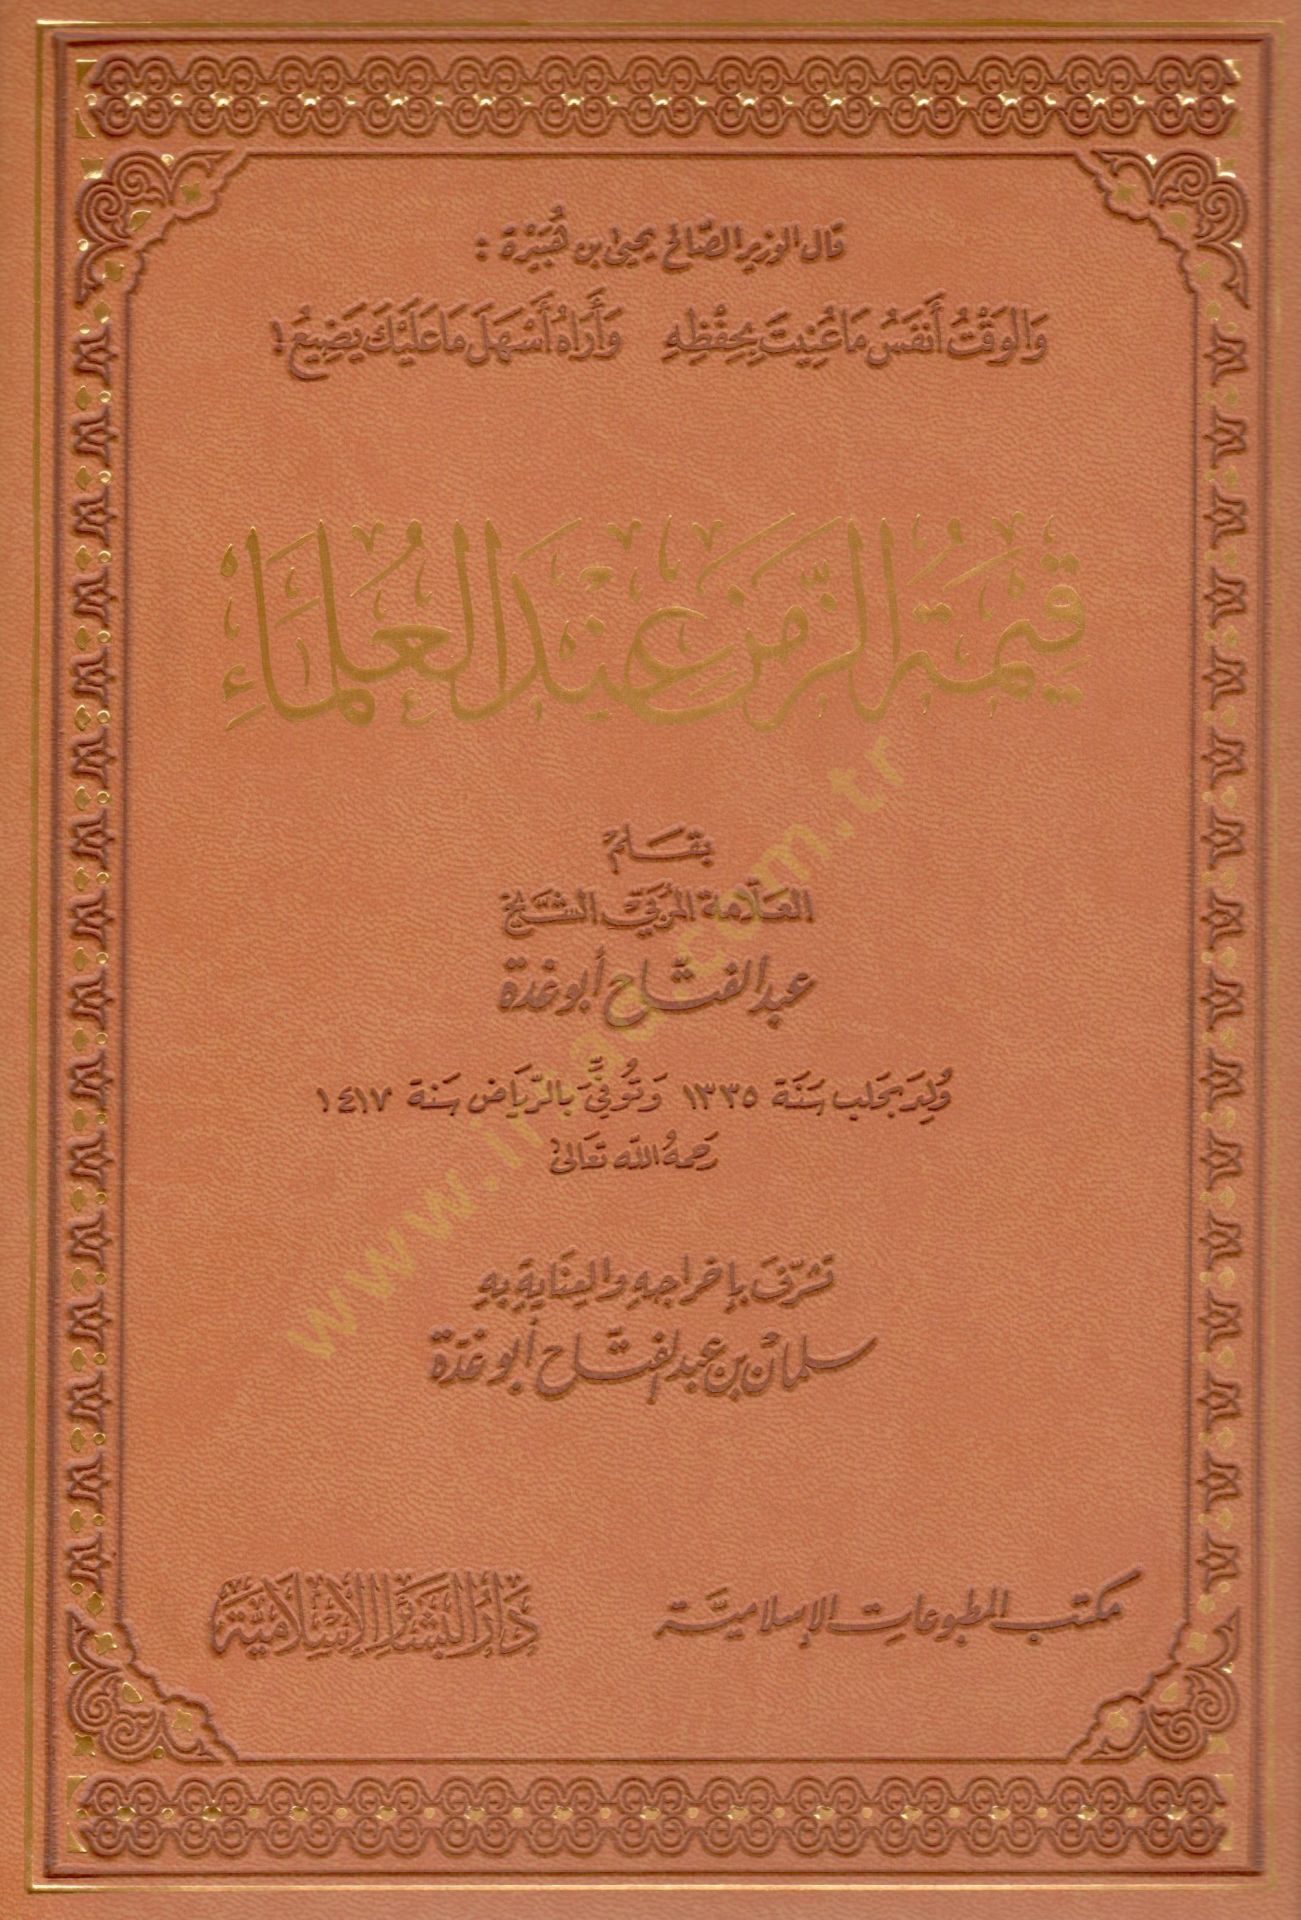 قال الوزير الصالح يحيى بن هُبَيْرة :
وَالوَقْتُ أَنفَسُ مَا عُنِيتَ بِحِفْظِهِ    وَأَرَاهُ أَسْهَلَ مَا عَلَيْكَ يَضِيعُ !
قِيمَةُ الزَّمَنِ عِنْدَ العُلَمَاءِ
بقلم
العلّامة المربّي الشيخ
عبد الفتّاح أبو غدّة
وُلِدَ بحلب سَنَة ١٣٣٥ وَتُوُفِّيَ بالرّيَاض سَنة ١٤١٧
رحمهُ الله تعَالى
تشرّفَ بإخراجِهِ والعِنَايةِ بِهِ
سلمان بن عبد الفتّاح أبو غدّة
مكتب المطبوعات الإسلاميّة
دَارُ البَشَائِرِ الإِسْلَامِيَّة
www.irsad.com.tr